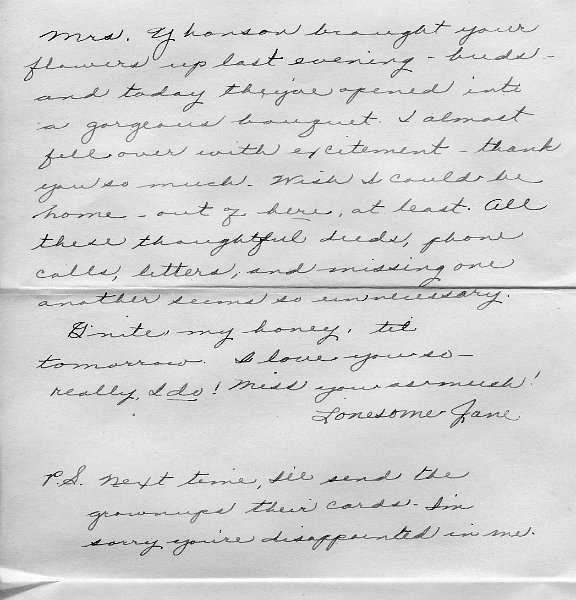 Mrs. Yhanson brought your
flowers up last evening - buds -
and today they've opened into
a gorgeous bouquet. I almost
fell over with excitement - thank
you so much. Wish I could be
home - out of here, at least. All
these thoughtful deeds, phone
calls, letters, and missing one
another seems so unnecessary.
G'nite my honey, 'til
tomorrow. I love you so -
really, I do! Miss you as much!
Lonesome Jane
P.S. Next time, I'll send the
grownups their cards. I'm
sorry you're disappointed in me.